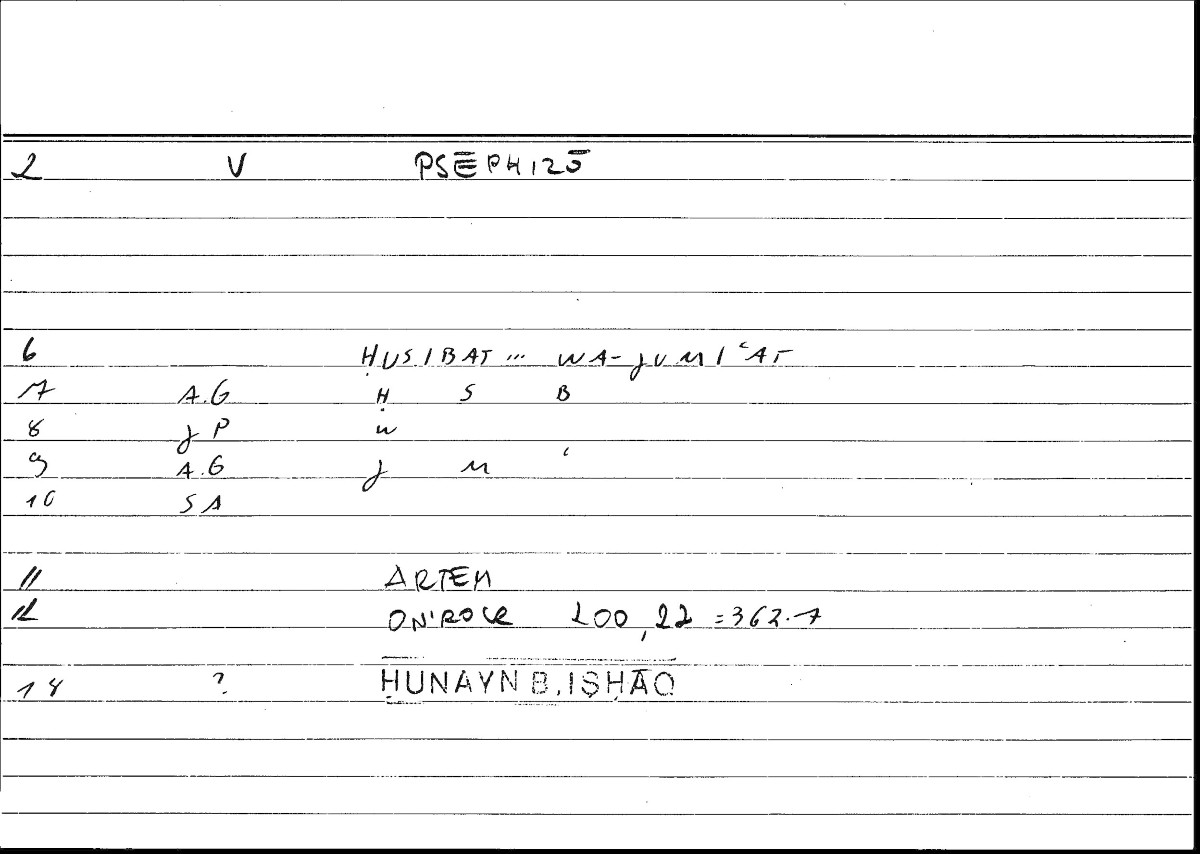 2 V PSĒPHIZŌ
6 ḤUSIBAT ... WA-JUMIʿAT
7 A.G Ḥ S B
8 JP W
9 A.G J M ʿ
10 SA
11 ARTEM
12 ONIROCR 200,22 =362.7
14 ? ḤUNAYN B. ISḤĀQ